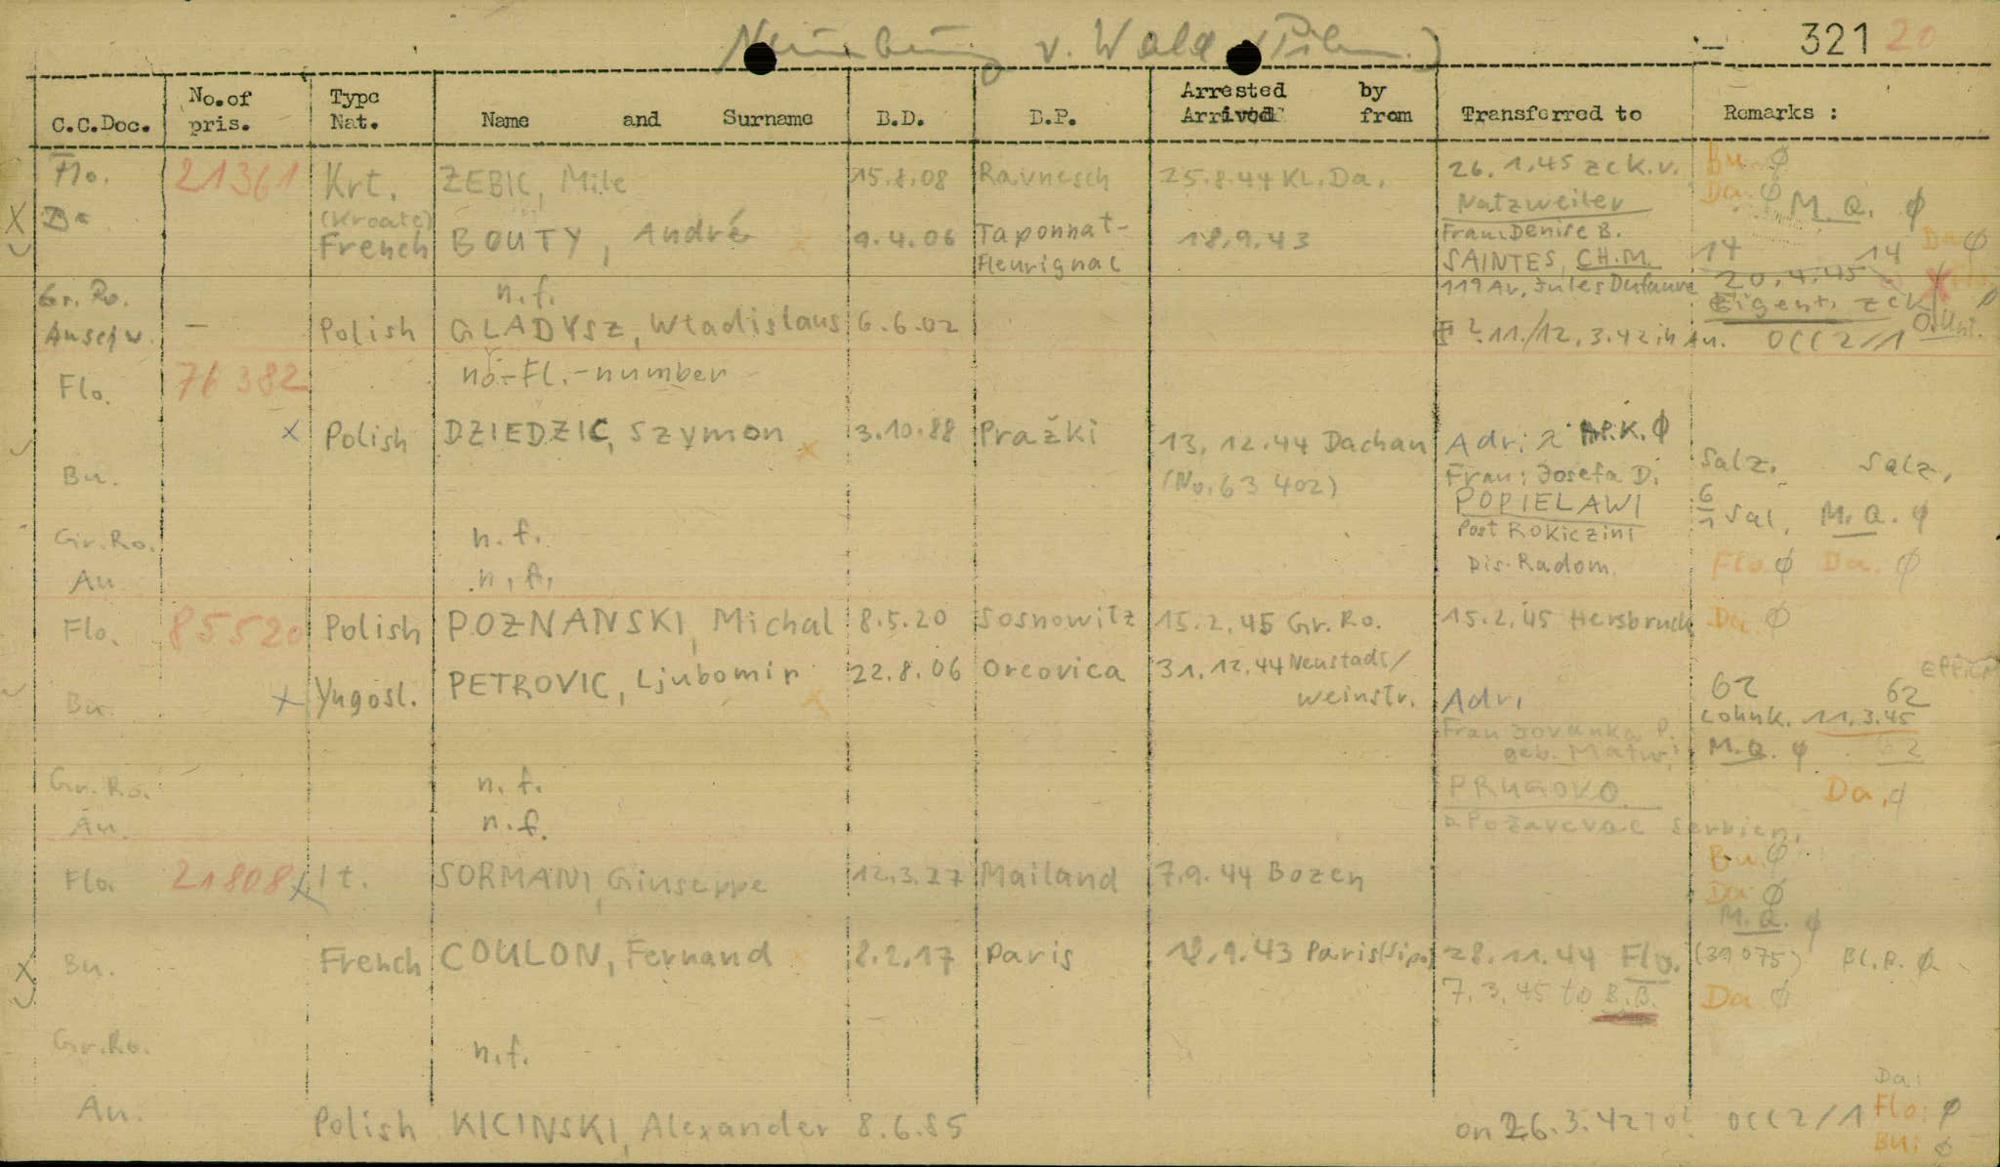 Neunburg v. Wald
321 20
C.C.Doc. No. of pris. Type Nat. Name and Surname B.D. B.P. Arrested by Arrived from Transferred to Remarks :
Flo. 21361 Krt. ZEBIC, Mile 15.8.08 Ravnesch 25.8.44 KL. Da. 26.1.45 zck.v. Bu. ϕ
(Kroate) Natzweiler Da. ϕ M.Q. ϕ
X French BOUTY, André 9.4.06 Taponnat- 18.9.43 Frau: Denise B. 14 14 Da ϕ
Fleurignac SAINTES, CH.M. 20.4.45
Gr. Ro. n.f. 119 Av, Jules Dufaure Eigent. zck
Auschw. — Polish GLADYSZ, Wladislaus 6.6.02 11./12.3.42 in Au. OCC 2/1
Flo. 76382 no-Fl.-number
x Polish DZIEDZIC, Szymon x 3.10.88 Pražki 13.12.44 Dachau Adr: ϕ
Bu. (No. 63 402) Frau: Josefa D. Salz. Salz.
POPIELAWI 6/1 Sal. M.Q. ϕ
Gr.Ro. n.f. Post Rokiczini
Au n.f. Dis. Radom Flo. ϕ Da. ϕ
Flo. 85520 Polish POZNANSKI, Michal 8.5.20 Sosnowitz 15.2.45 Gr. Ro. 15.2.45 Hersbruck Da. ϕ
Bu. x Yugosl. PETROVIC, Ljubomir x 22.8.06 Orcovica 31.12.44 Neustadt/ Adr. 62 62
Weinstr. Lohnk. 11.3.45
Frau Jovanka P. M.Q. ϕ 62
Gr. Ro. n.f. PRUGOVO Da. ϕ
Au. n.f. Požarevac Serbien.
Flo. 21808 x It. SORMANI, Giuseppe 12.3.27 Mailand 7.9.44 Bozen Bu. ϕ
Da ϕ
M.Q. ϕ
X Bu. French COULON, Fernand 8.2.17 Paris 18.9.43 Paris (Sipo) 28.11.44 Flo. (39075) Bl.P. ϕ
7.3.45 to B.B. Da ϕ
Gr.Ro. n.f.
Da:
Au. Polish KICINSKI, Alexander 8.6.85 on 26.3.42 OCC 2/1 Flo: ϕ
Bu: ϕ